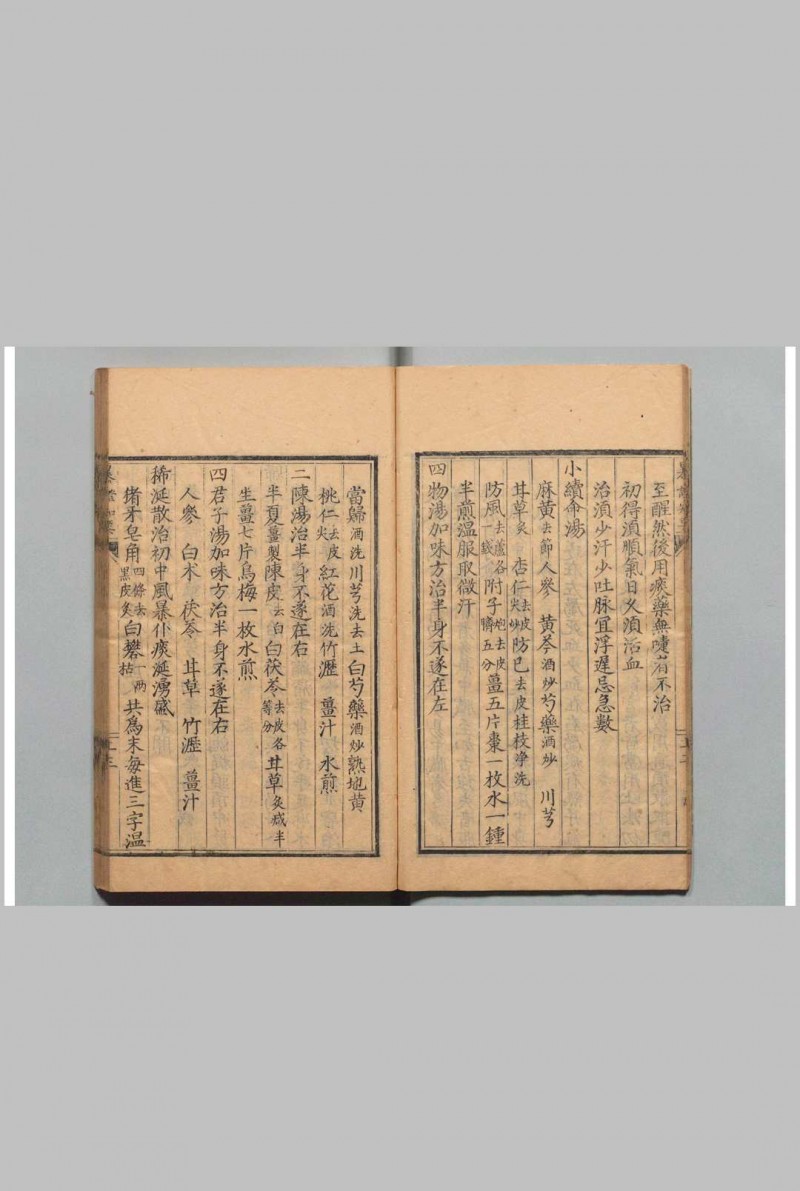 至醒然後用痰藥無嚏者不治
初得湏順氣日久湏活血
治湏少汗少吐脉宜浮遲忌急數
小續命湯
麻黄去節人參 黄芩酒炒芍藥酒炒 川芎
甘草炙 杏仁去皮尖炒防已去皮桂枝净洗
防風去蘆各一錢附子炮去皮臍五分薑五片棗一枚水一鍾
半煎温服取微汗
四物湯加味方治半身不遂在左
當歸酒洗川芎洗去土白芍藥酒炒熟地黄
桃仁去皮尖紅花酒洗竹瀝 薑汁 水煎
二陳湯治半身不遂在右
半夏薑製陳皮去白白茯苓去皮各等分甘草炙减半
生薑七片烏梅一枚水煎
四君子湯加味方治半身不遂在右
人參 白术 茯苓 甘草 竹瀝 薑汁
稀涎散治初中風暴仆痰涎湧盛
猪牙皂角四條去黑皮炙白礬一兩枯共爲末每進三字温